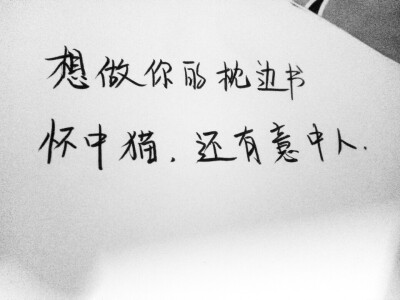 想做你的枕边书
怀中猫，还有意中人.